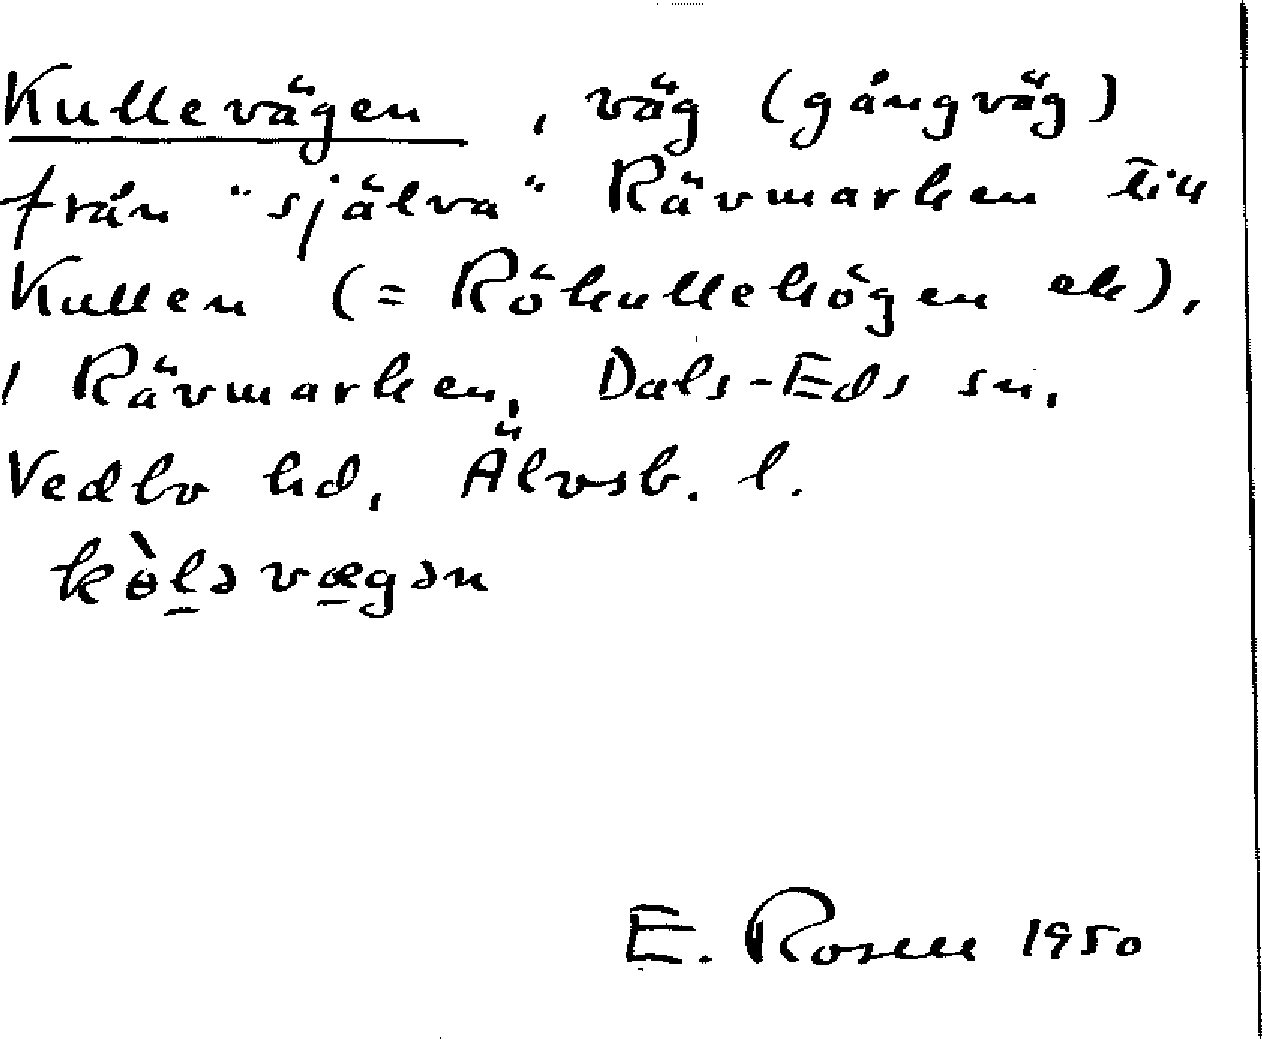 Kullevägen, väg (gångväg)
från "själva" Rävmarken till
Kullen (= Rökullehögen ek),
i Rävmarken, Dals-Eds sn,
Vedbo hd, Älvsb. l.
kɵ̀l̠ə væ̠gən
E. Rosell 1950